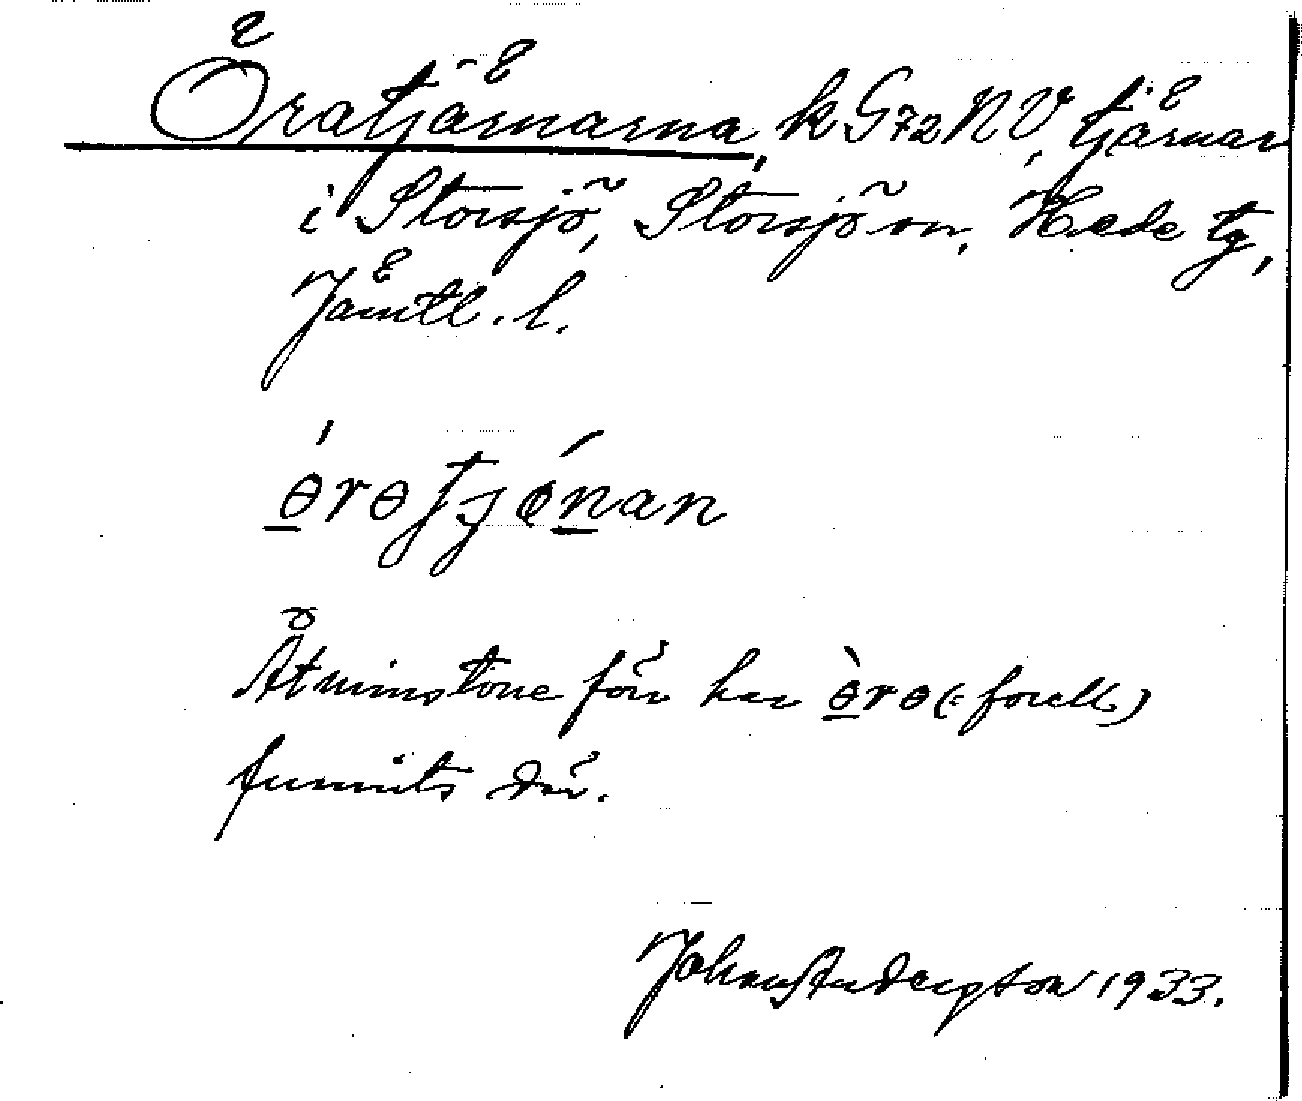 Öratjärnarna, k G72 NV, tjärnar
i Storsjö, Storsjö sn, Hede tg,
Jämtl. l.
Åtminstone förr har ɵrɵ (= forell)
funnits där.
John Andersson 1933.